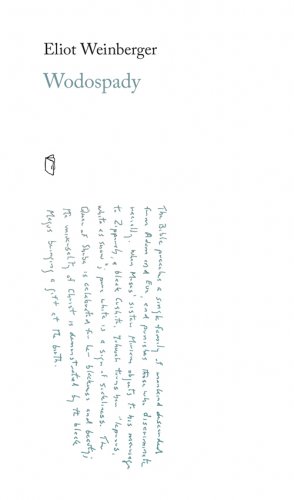 Eliot Weinberger
Wodospady
The Bible presents a single family of mankind descended
from Adam and Eve, and punishes those who discriminate
racially. When Moses' sister Miriam objects to his marriage
to Zipporah, a black Cushite, Jehovah turns her "leprous,
white as snow"; pure white is a sign of sickliness. The
Queen of Sheba is celebrated for her blackness and beauty;
the universality of Christ is demonstrated by the black
Magus bringing a gift at the birth.